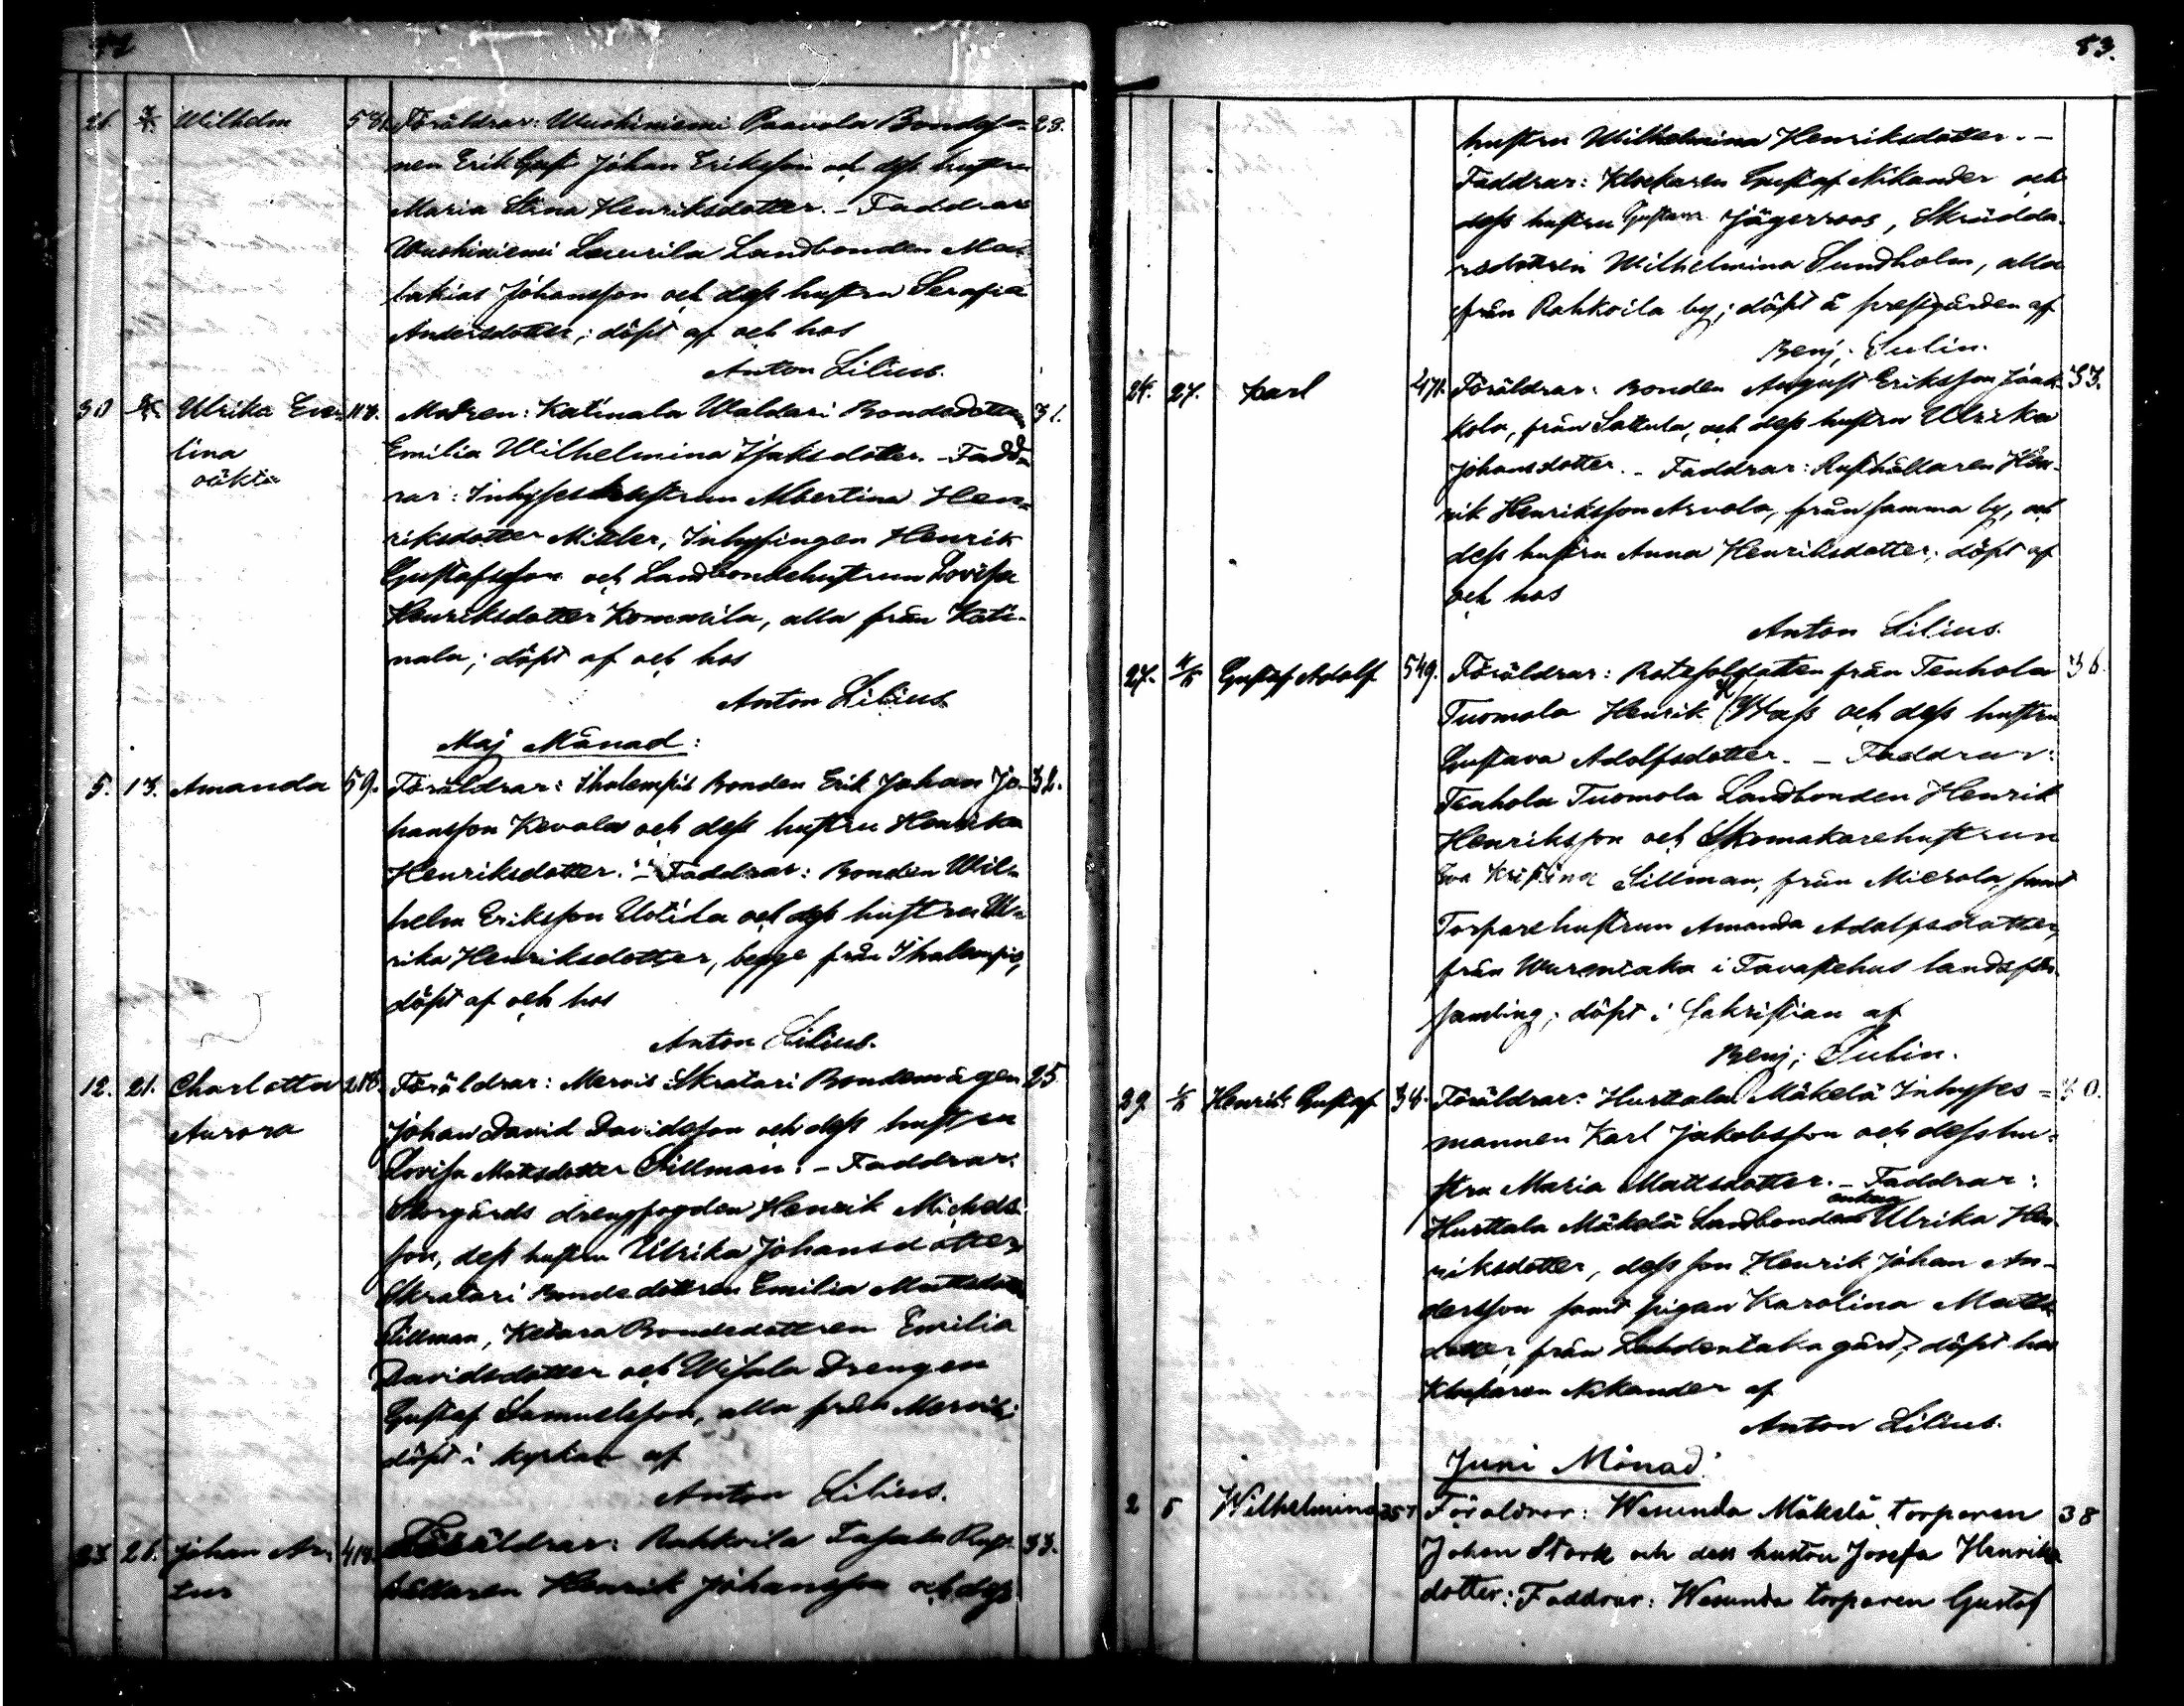 26. Wilhelm 581. Föräldrar: Wuohiniemi Paavola Bondeso- 28.
nen Erik Gust Johan Eriksson och dess hustru
Maria Stina Henriksdotter. – Faddrar
Wuohiniemi Laurila Landbonden Ma-
lakias Johansson och dess hustru Serafia
Andersdotter; döpt af och hos
Anton Lilius.
30 Ulrika Eve- 113. Modren: Katinala Waldari Bondedottren 31.
lina Emilia Wilhelmina Isaksdotter. – Fadd-
oäkta rar: Inhyseshustrun Albertina Hen-
riksdotter Miller, Inhysingen Henrik
Gustafsson och Landbondehustrun Lovisa
Henriksdotter Kommila, alla från Kati-
nala; döpt af och hos
Anton Lilius.
Maj Månad:
5. 13. Amanda 59. Föräldrar: Ihalempis Bonden Erik Johan Jo- 32.
hansson Kevola och dess hustru Henrika
Henriksdotter. – Faddrar: Bonden Wil-
helm Eriksson Uotila och dess hustru Ul-
rika Henriksdotter, begge från Ihalempis,
döpt af och hos
Anton Lilius.
12. 21. Charlotta 218. Föräldrar: Mervis Skratari Bondemågen 25
Aurora Johan David Davidsson och dess hustru
Lovisa Matsdotter Sillman. – Faddrar:
Storgårds drengfogden Henrik Michels-
son, dess hustru Ulrika Johansdotter,
Skratari Bondedottren Emilia Mattsdotter
Sillman, Ketara Bondedottren Emilia
Davidsdotter och Wisala Drengen
Gustaf Samuelsson, alla från Mervis;
döpt i kyrkan af
Anton Lilius.
23. 26. Johan Ar- 418. Föräldrar: Rahkoila Tasala Rust- 33.
tur hållaren Henrik Johansson och dess
83.
hustru Wilhelmina Henriksdotter. –
Faddrar: Klockaren Gustaf Nikander och
dess hustru Gustava Jägerroos, Skrädda-
redottren Wilhelmina Sundholm, alla
från Rahkoila by; döpt å prestgården af
Benj. Sulin.
24. 27. Karl 471. Föräldrar: Bonden August Eriksson Jaak- 33.
kola, från Sattula, och dess hustru Ulrika
Johansdotter. – Faddrar: Rusthållaren Hen-
rik Henriksson Arvola, från samma by, och
dess hustru Anna Henriksdotter; döpt af
och hos
Anton Lilius.
27. 4/6 Gustaf Adolf 549. Föräldrar: Rotesoldaten från Tenhola 36.
Tuomola Henrik Wass och dess hustru
Gustava Adolfsdotter. – Faddrar:
Tenhola Tuomola Landbonden Henrik
Henriksson och Skomakarehustrun
Eva Kristina Sillman, från Mierola, samt
Torparehustrun Amanda Adolfsdotter,
från Wurentaka i Tavastehus landsför-
samling; döpt i Sakristian af
Benj. Sulin.
29. 1/6 Henrik Gustaf 34. Föräldrar: Hurttala Mäkelä Inhyses- 30.
mannen Karl Jakobsson och dess hu-
stru Maria Mattsdotter. – Faddrar:
Hurttala Mäkelä Landbonde enkan Ulrika Hen-
riksdotter, dess son Henrik Johan An-
dersson samt pigan Karolina Matts-
dotter från Lahdentaka gård; döpt hos
Klockaren Nikander af
Anton Lilius.
Juni Månad:
2 5 Wilhelmina 357 Föräldrar: Wesunda Mäkelä torparen 38
Johan Stark och dess hustru Josefa Henriks
dotter: Faddrar: Wesunda torparen Gustaf